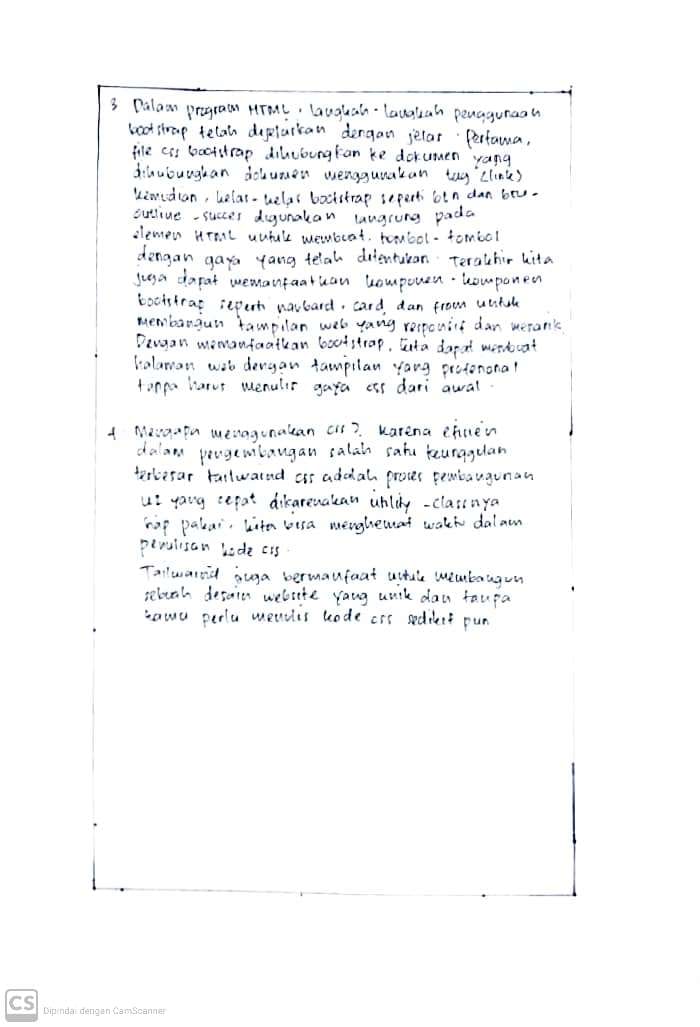 3 Dalam program HTML, langkah-langkah penggunaan
bootstrap telah dijelaskan dengan jelas. Pertama,
file css bootstrap dihubungkan ke dokumen yang
dihubungkan dokumen menggunakan tag (link)
kemudian, kelas-kelas bootstrap seperti btn dan btn-
outline-succes digunakan langsung pada
elemen HTML untuk membuat tombol-tombol
dengan gaya yang telah ditentukan. Terakhir kita
juga dapat memanfaatkan komponen-komponen
bootstrap seperti navbard, card, dan from untuk
membangun tampilan web yang responsif dan menarik
Dengan memanfaatkan bootstrap, kita dapat membuat
halaman web dengan tampilan yang profesional
tanpa harus menulis gaya css dari awal.
4 Mengapa menggunakan css? karena efisien
dalam pengembangan salah satu keunggulan
terbesar tailwaind css adalah proses pembangunan
UI yang cepat dikarenakan utility-classnya
siap pakai, kita bisa menghemat waktu dalam
penulisan kode css.
Tailwaind juga bermanfaat untuk membangun
sebuah desain website yang unik dan tanpa
kamu perlu menulis kode css sedikit pun
CS Dipindai dengan CamScanner